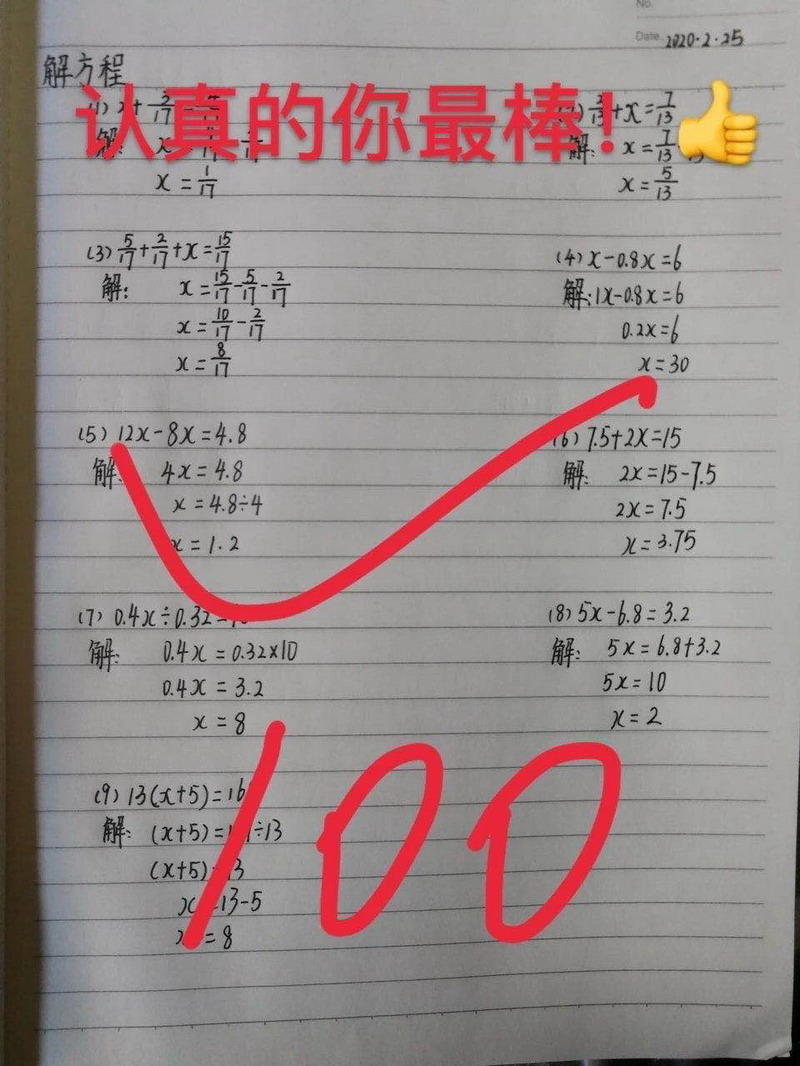 No.
Date 2020·2·25
解方程
认真的你最棒！👍
(1) x+
+x=7/13
解:
解: x=7/13
x=1/17
x=5/13
(3) 5/17+2/17+x=15/17
(4) x-0.8x=6
解: x=15/17-5/17-2/17
解: 1x-0.8x=6
x=10/17-2/17
0.2x=6
x=8/17
x=30
(5) 12x-8x=4.8
(6) 7.5+2x=15
解: 4x=4.8
解: 2x=15-7.5
x=4.8÷4
2x=7.5
x=1.2
x=3.75
(7) 0.4x÷0.32=
(8) 5x-6.8=3.2
解: 0.4x=0.32×10
解: 5x=6.8+3.2
0.4x=3.2
5x=10
x=8
x=2
(9) 13(x+5)=16
解: (x+5)= ÷13
(x+5) 3
x=13-5
x=8
100